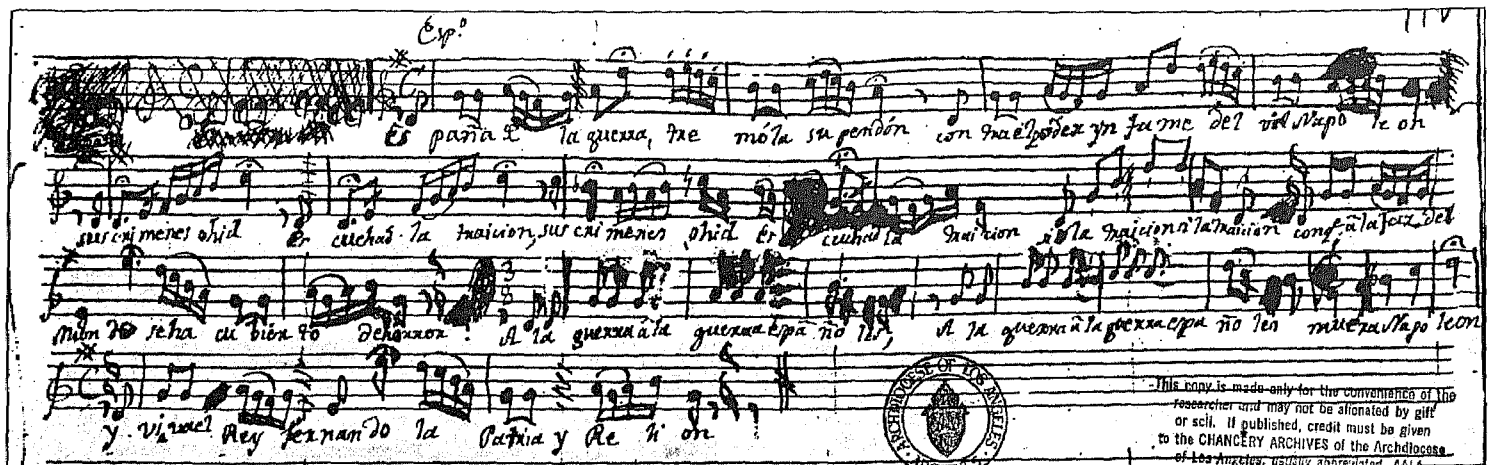 Esp.º
Es paña a la guerra, tre móla su pendón con tra el poder yn fa me del vil Napo le on
sus cri menes ohid es cuchad la traicion, sus cri menes ohid es cuchad la traicion la traicion la traicion conq.ᵉ à la faz del
Mun do seha cu bier to dehorror! A la guerra à la guerra espa ño les, A la guerra à la guerra espa ño les muera Napo leon
y viva el Rey fernan do la Patria y Re li on
ARCHDIOCESE OF LOS ANGELES
This copy is made only for the convenience of the
researcher and may not be alienated by gift
or sell. If published, credit must be given
to the CHANCERY ARCHIVES of the Archdiocese
of Los Angeles, usually abbreviated, AALA